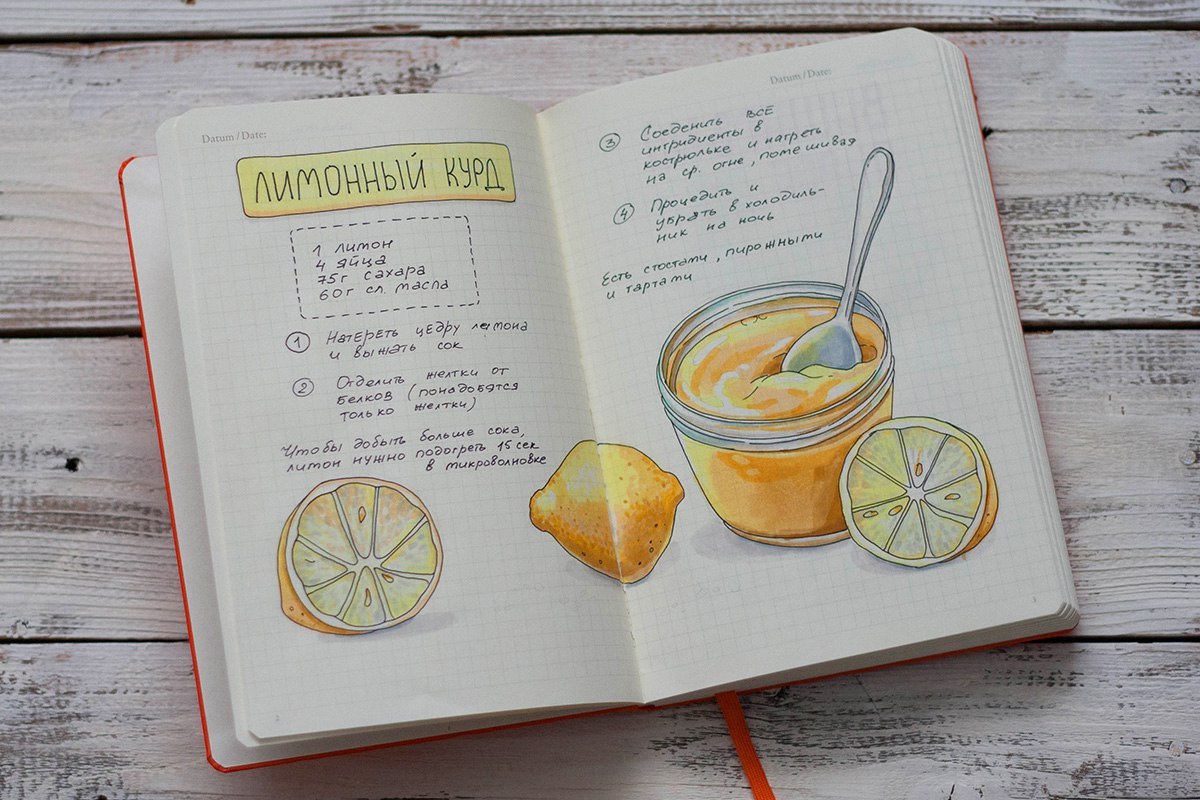 Datum / Date:
ЛИМОННЫЙ КУРД
1 лимон
4 яйца
75г сахара
60г сл. масла
1 Натереть цедру лимона
и выжать сок
2 Отделить желтки от
белков (понадобятся
только желтки)
Чтобы добыть больше сока,
лимон нужно подогреть 15 сек
в микроволновке
Datum / Date:
3 Соеденить все
интридиенты в
кострюльке и нагреть
на ср. огне, помешивая
4 Процедить и
убрать в холодиль-
ник на ночь
Есть стостами, пирожными
и тартами